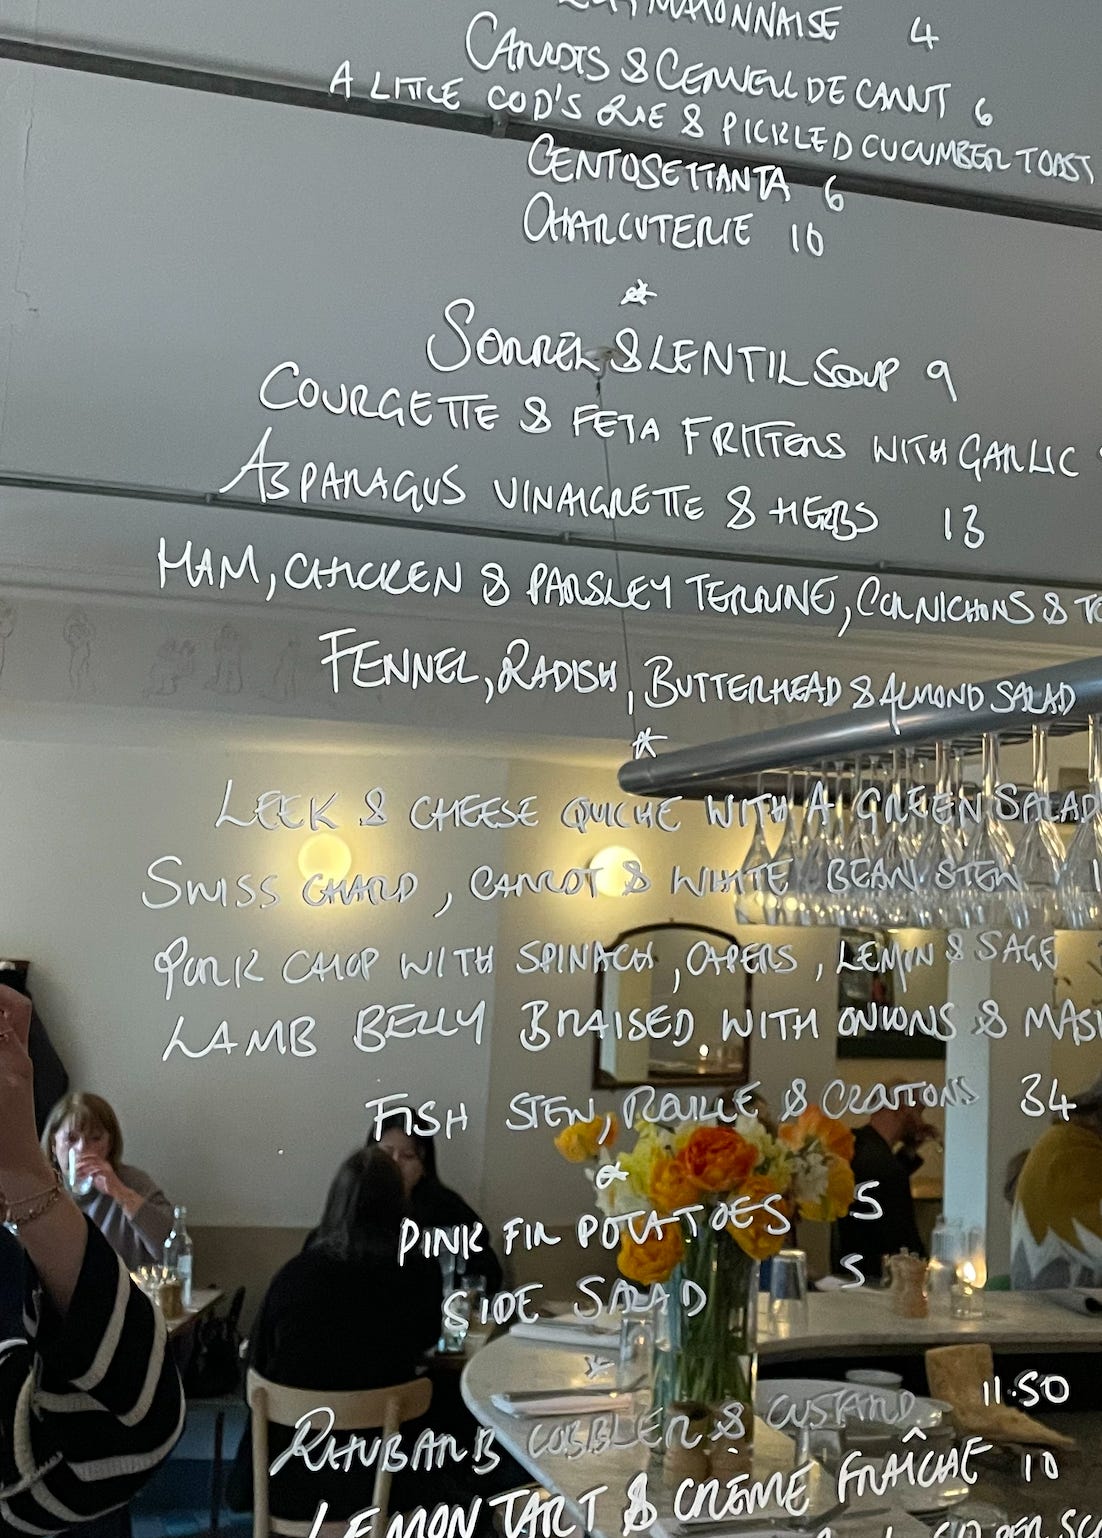 MAYONNAISE 4
CARROTS & CERVELL DE CANUT 6
A LITTLE COD'S ROE & PICKLED CUCUMBER TOAST
CENTOSETTANTA 6
CHARCUTERIE 10
*
SORREL & LENTIL SOUP 9
COURGETTE & FETA FRITTERS WITH GARLIC
ASPARAGUS VINAIGRETTE & HERBS 13
HAM, CHICKEN & PARSLEY TERRINE, CORNICHONS & TO
FENNEL, RADISH, BUTTERHEAD & ALMOND SALAD
*
LEEK & CHEESE QUICHE WITH A GREEN SALAD
SWISS CHARD, CARROT & WHITE BEAN STEW 1
PORK CHOP WITH SPINACH, CAPERS, LEMON & SAGE
LAMB BELLY BRAISED WITH ONIONS & MAS
FISH STEW, ROUILLE & CROUTONS 34
*
PINK FIR POTATOES 5
SIDE SALAD 5
*
RHUBARB COBBLER & CUSTARD 11.50
LEMON TART & CRÈME FRAÎCHE 10